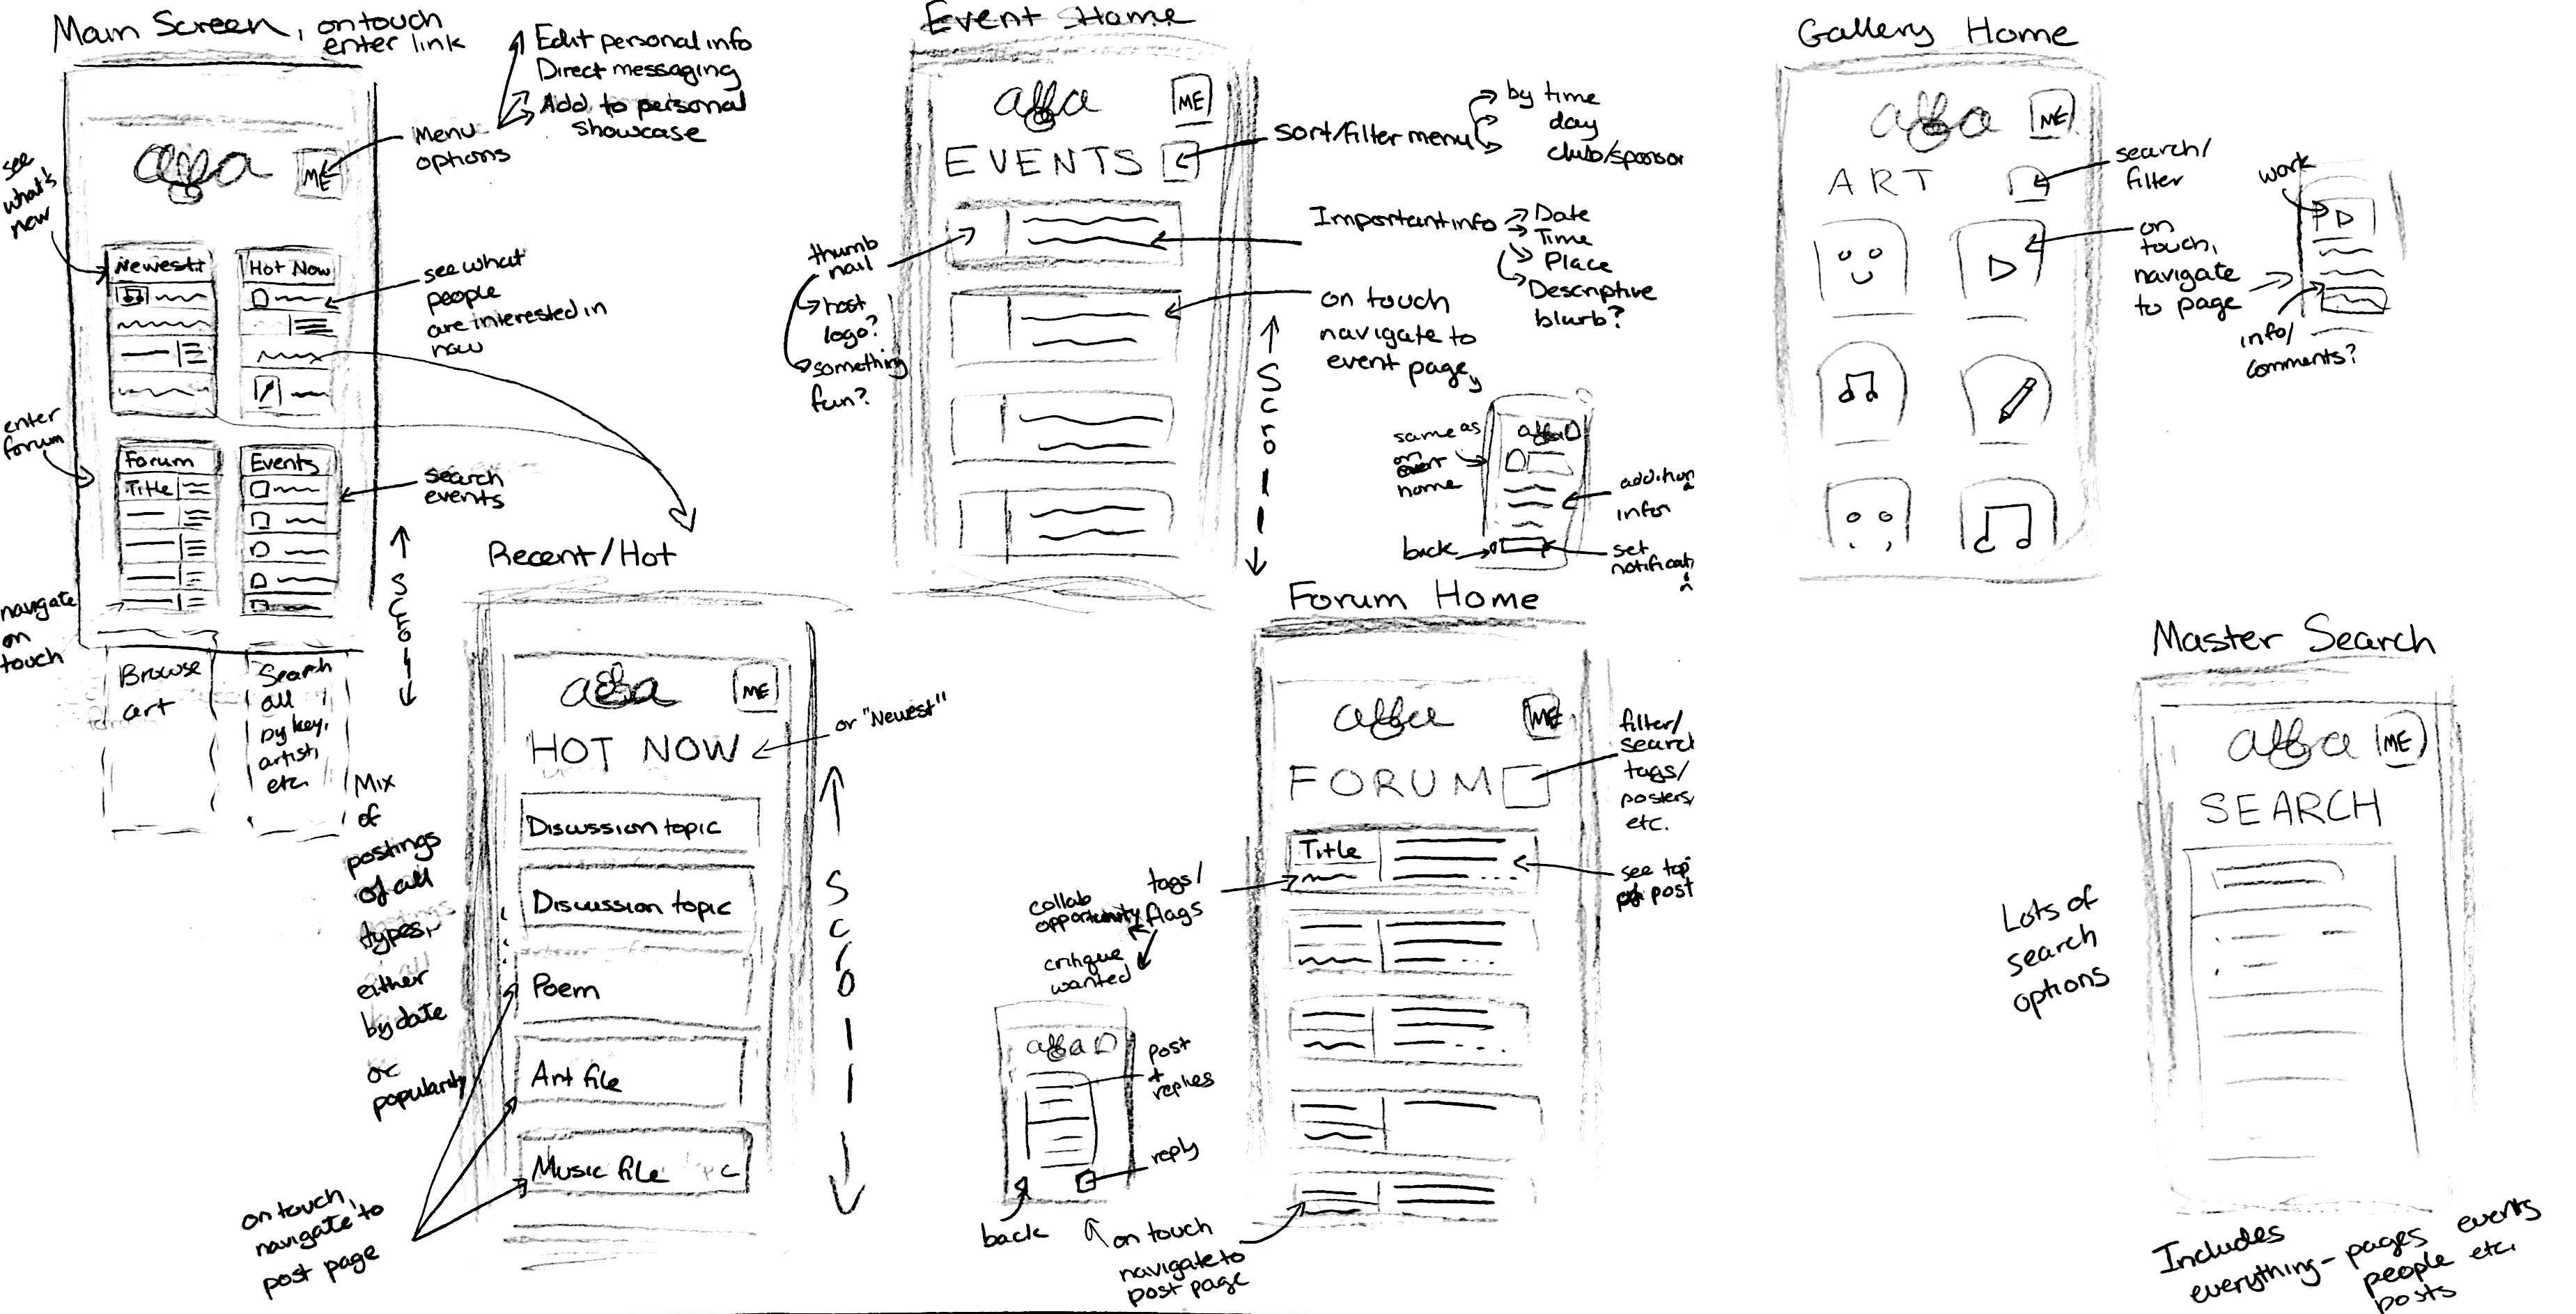 Main Screen, on touch
enter link
Edit personal info
Direct messaging
Add to personal
showcase
Menu
options
ME
see
what's
new
Newest
Hot Now
see what
people
are interested in
now
enter
forum
Forum
Title
Events
search
events
navigate
on
touch
Scroll
Browse
art
Search
all
by key,
artist,
etc.
Recent/Hot
ME
HOT NOW
or "Newest"
Discussion topic
Discussion topic
Poem
Art file
Music file
Scroll
Mix
of
postings
of all
types,
either
by date
or
popularity
on touch,
navigate to
post page
Event Home
ME
EVENTS
sort/filter menu
by time
day
club/sponsor
thumb
nail
host
logo?
something
fun?
Important info
Date
Time
Place
Descriptive
blurb?
on touch
navigate to
event page
Scroll
same as
on event
home
addition
info
back
set
notificati
Forum Home
ME
FORUM
filter/
search
tags/
posters,
etc.
Title
see top
of post
tags/
flags
collab
opportunity
critique
wanted
post
+
replies
reply
back
on touch
navigate to
post page
Gallery Home
ME
ART
search/
filter
on
touch,
navigate
to page
work
info/
comments?
Master Search
ME
SEARCH
Lots of
search
options
Includes
everything - pages events
people etc.
posts